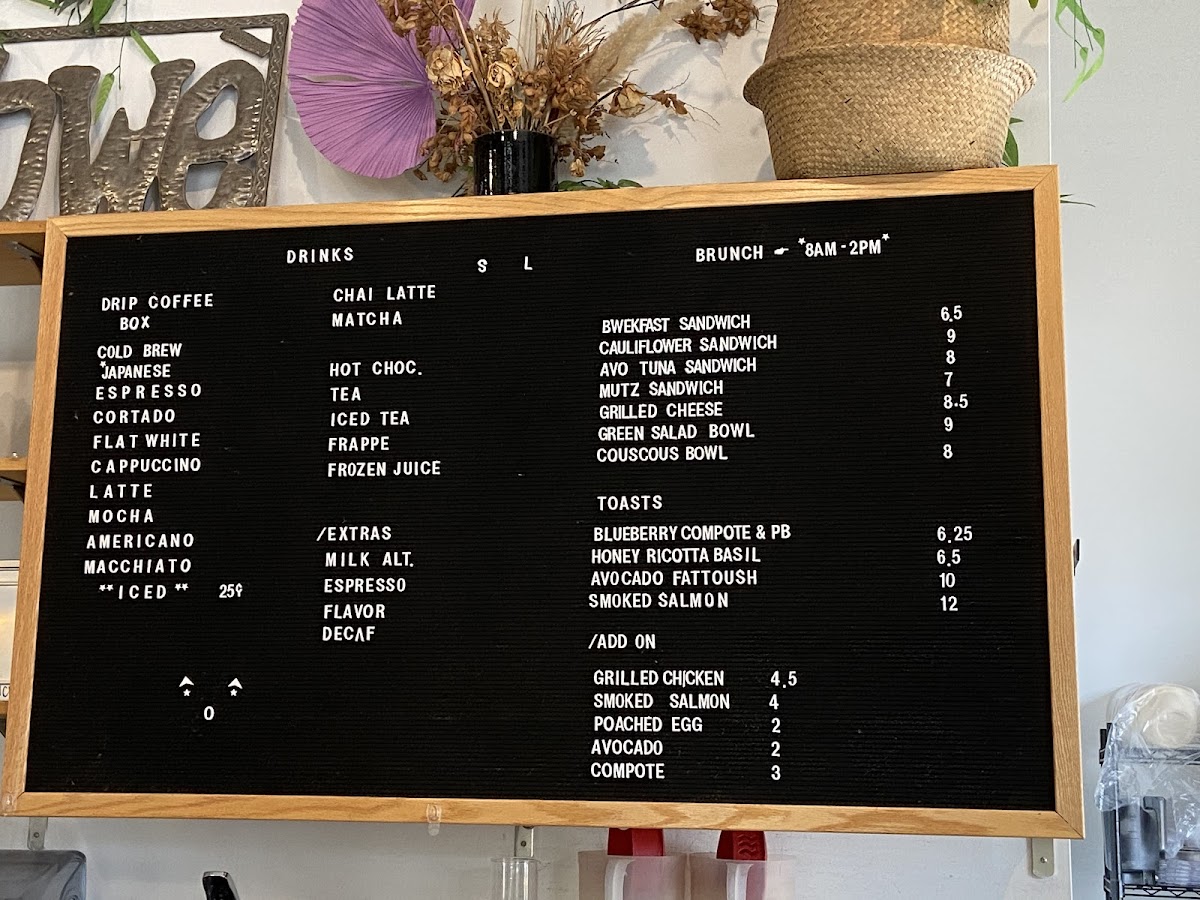 owe
DRINKS
S L
DRIP COFFEE
BOX
COLD BREW
*JAPANESE
ESPRESSO
CORTADO
FLAT WHITE
CAPPUCCINO
LATTE
MOCHA
AMERICANO
MACCHIATO
**ICED** 25¢
CHAI LATTE
MATCHA
HOT CHOC.
TEA
ICED TEA
FRAPPE
FROZEN JUICE
/EXTRAS
MILK ALT.
ESPRESSO
FLAVOR
DECAF
BRUNCH ☛ *8AM-2PM*
BWEKFAST SANDWICH 6.5
CAULIFLOWER SANDWICH 9
AVO TUNA SANDWICH 8
MUTZ SANDWICH 7
GRILLED CHEESE 8.5
GREEN SALAD BOWL 9
COUSCOUS BOWL 8
TOASTS
BLUEBERRY COMPOTE & PB 6.25
HONEY RICOTTA BASIL 6.5
AVOCADO FATTOUSH 10
SMOKED SALMON 12
/ADD ON
GRILLED CHICKEN 4.5
SMOKED SALMON 4
POACHED EGG 2
AVOCADO 2
COMPOTE 3